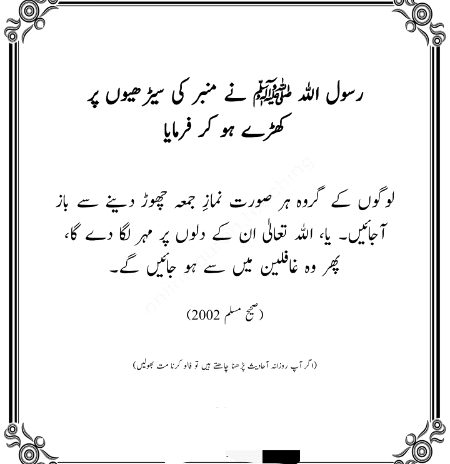 رسول اللہ ﷺ نے منبر کی سیڑھیوں پر
کھڑے ہو کر فرمایا
لوگوں کے گروہ ہر صورت نمازِ جمعہ چھوڑ دینے سے باز
آجائیں۔ یا، اللہ تعالیٰ ان کے دلوں پر مہر لگا دے گا،
پھر وہ غافلین میں سے ہو جائیں گے۔
(صحیح مسلم 2002)
(اگر آپ روزانہ آحادیث پڑھنا چاھتے ہیں تو فالو کرنا مت بھولیں)